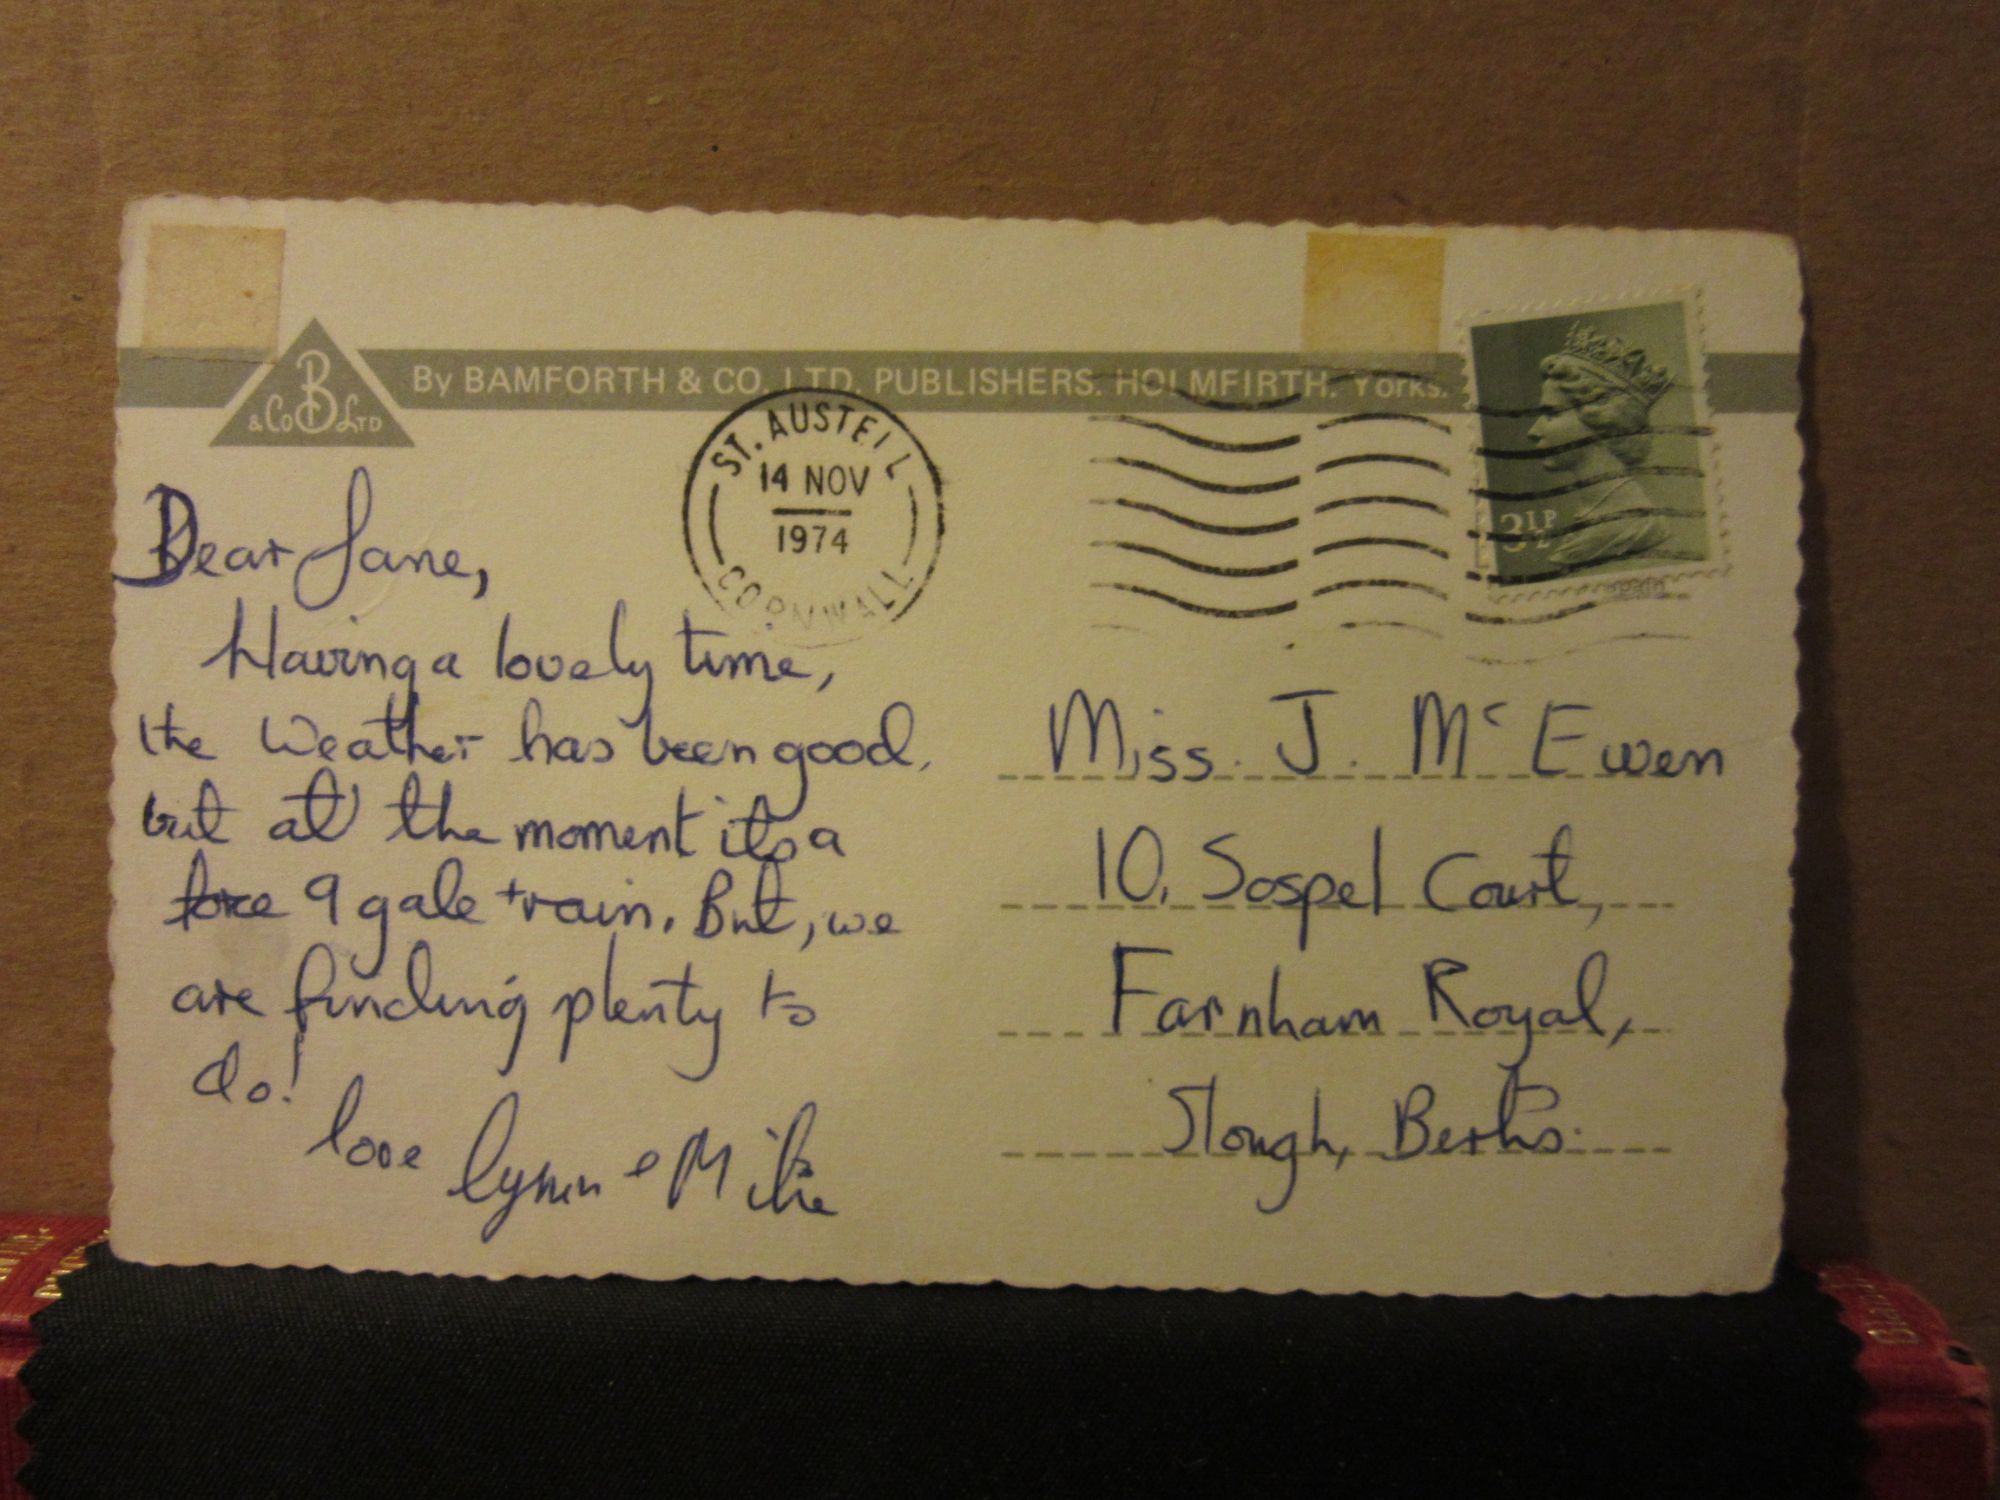 B
& Co LTD
By BAMFORTH & CO. LTD. PUBLISHERS. HOLMFIRTH. Yorks.
ST. AUSTELL
14 NOV
1974
CORNWALL
3½P
Dear Jane,
Having a lovely time,
the Weather has been good,
but at the moment its a
force 9 gale + rain. But, we
are finding plenty to
do!
love Lynn & Mike
Miss. J. McEwen
10, Sospel Court,
Farnham Royal,
Slough, Berks.